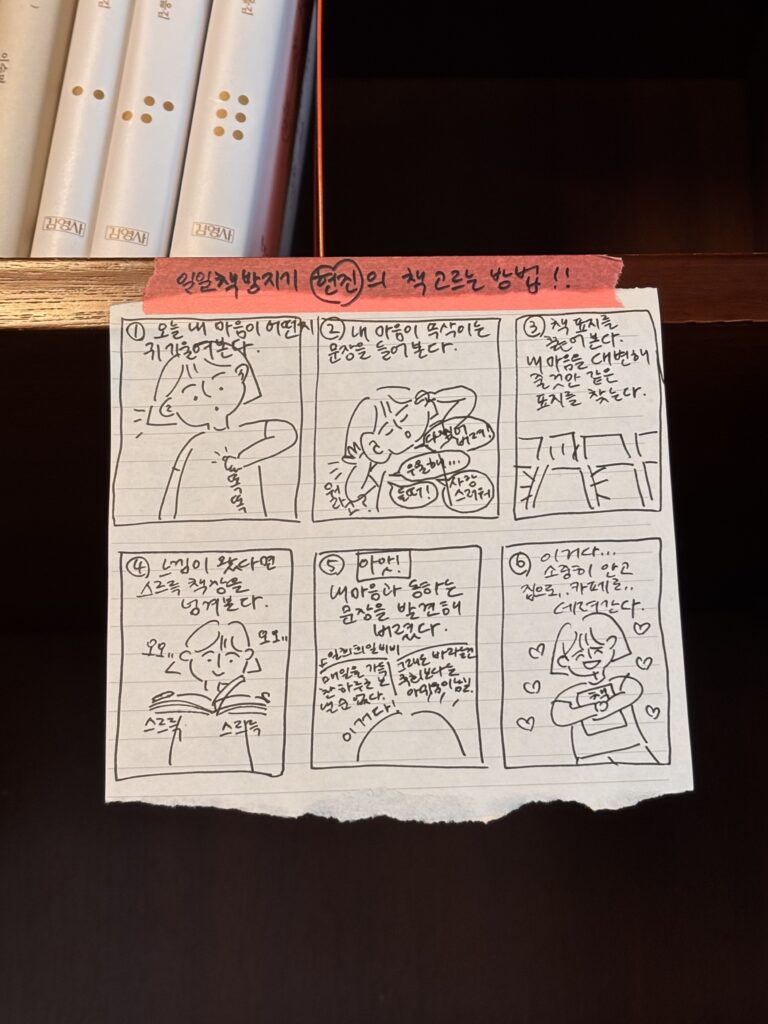 김영사
김영사
김영사
일일책방지기 현진의 책 고르는 방법 !!
① 오늘 내 마음이 어떤지
귀 기울여본다.
똑
똑
똑
② 내 마음이 속삭이는
문장을 들어본다.
다 찢어
버려!
우울해...
들떠!
사랑
스러워
뭘
라고?
③ 책 표지를
훑어본다.
내 마음을 대변해
줄 것만 같은
표지를 찾는다.
④ 느낌이 왔다면
스르륵 책장을
넘겨본다.
오오..
오오..
스르륵
스르륵
⑤ 아앗!
내 마음과 통하는
문장을 발견해
버렸다.
매일을 가득
잔 하루로 보
낼 순 없다.
그래도 바라는건
후회보다는
이거다!
⑥ 이거다...
소중히 안고
집으로.. 카페로..
데려간다.
책